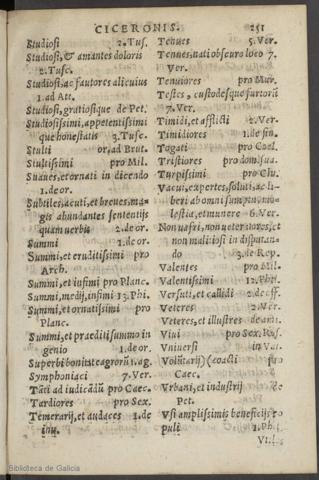 CICERONIS. 251
Studiosi 2.Tus.
Studiosi, & amantes doloris
2.Tusc.
Studiosi, ac fautores alicuius
1.ad Att.
Studiosi, gratiosique de Pet.
Studiosissimi, appetentissimi
que honestatis 3.Tusc.
Stulti or, ad Brut.
Stultissimi pro Mil.
Suaues, et ornati in dicendo
1.de or.
Subtiles, acuti, et breues, ma-
gis abundantes sententijs
quam verbis 2.de or.
Summi 1.de or.
Summi, et eruditissimi pro
Arch.
Summi, et infimi pro Planc.
Summi, medij, infimi 13.Phi.
Summi, et ornatissimi pro
Planc.
Summi, et praediti summo in
genio 1.de or.
Superbi bonitate agrorū 1.ag.
Symphoniaci 7.Ver.
Tāti ad iudicādū pro Caec.
Tardiores pro Sex.
Temerarij, et audaces 1.de
inu.
Tenues 5.Ver.
Tenues, nati obscuro loco 7.
Ver.
Tenuiores pro Mur.
Testes, custodesque furtorū
7.Ver.
Timidi, et afflicti 2.Ver.
Timidiores 1.de fin.
Togati pro Cael.
Tristiores pro dom. sua.
Turpissimi pro Clu.
Vacui, expertes, soluti, ac li-
beri ab omni sumptu, mo-
lestia, et munere 6.Ver.
Non vafri, non veteratores, et
non malitiosi in disputan-
do 3.de Rep.
Valentes pro Mil.
Valentissimi 12.Phi.
Versuti, et callidi 2.de off.
Veteres 2.Ver.
Veteres, et illustres
Viui pro Sex. Ros.
Vniuersi in Vat.
Volūtarij, coacti pro
Caec.
Vrbani, et industrij de
Pet.
Vsi amplissimis beneficijs
puli 1.Ph
Biblioteca de Galicia